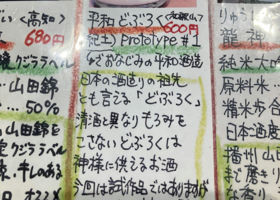 い 〈高知〉
680円
クジララベル
山田錦
50%
山田錦を
クジララベル
平和どぶろく 〈和歌山〉
600円
(紀土) prototype #1
などおなじみの平和酒造
日本の酒造りの祖先
とも言える「どぶろく」
清酒と異なりもろみを
こさないどぶろくは
神様に供えるお酒
今回は試作品ではありますが
りゅうじ
龍神
純米大吟
原料米
精米歩合
日本酒度
播州山田
まで磨き
な香り